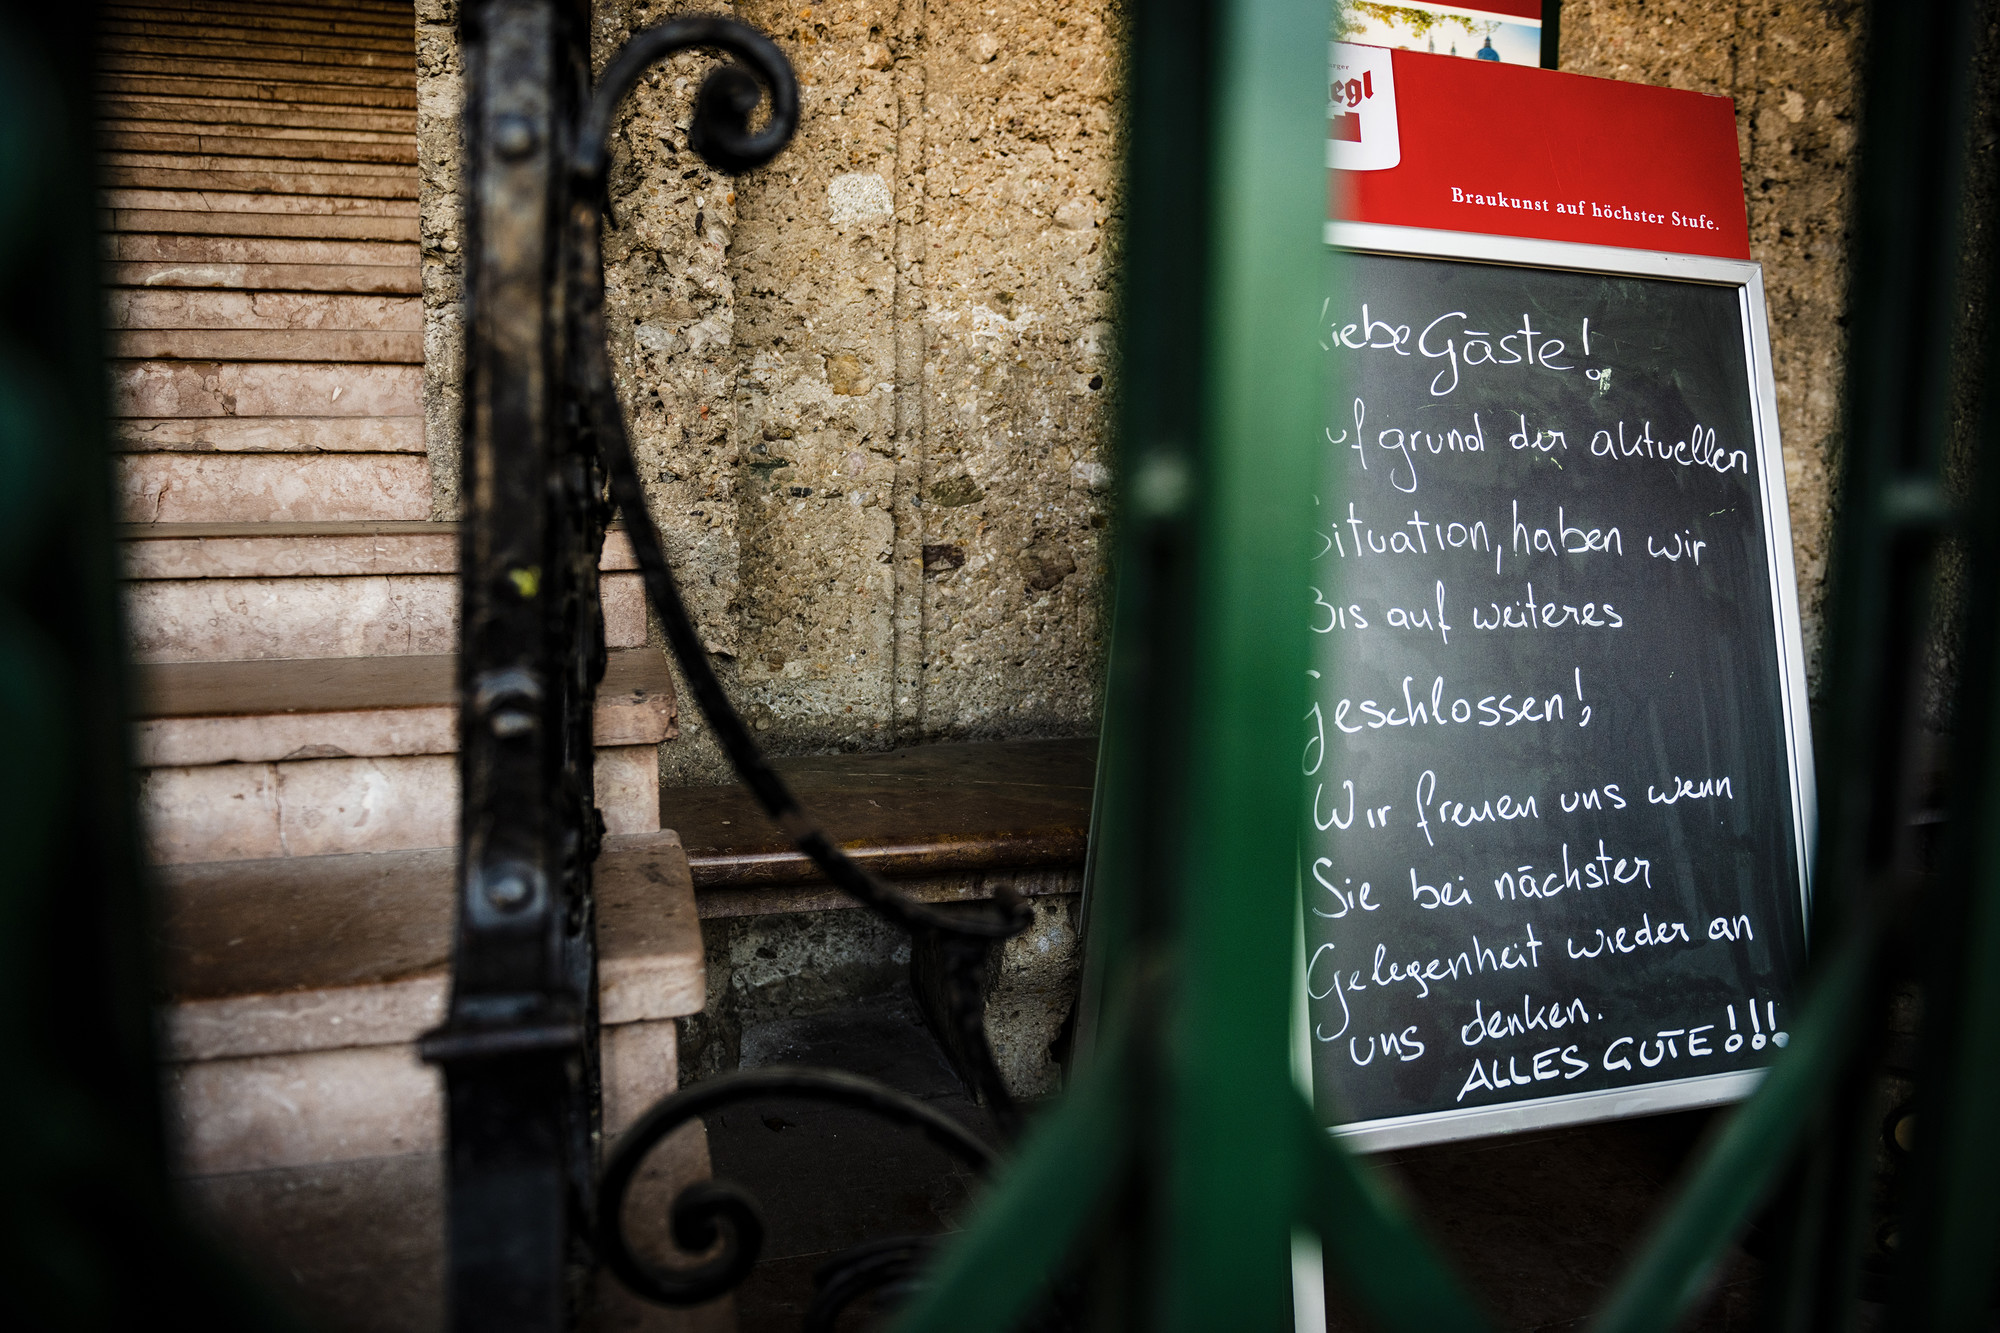 egl
Braukunst auf höchster Stufe.
iebe Gäste!
uf grund der aktuellen
Situation, haben wir
Bis auf weiteres
geschlossen!
Wir freuen uns wenn
Sie bei nächster
Gelegenheit wieder an
uns denken.
ALLES GUTE!!!